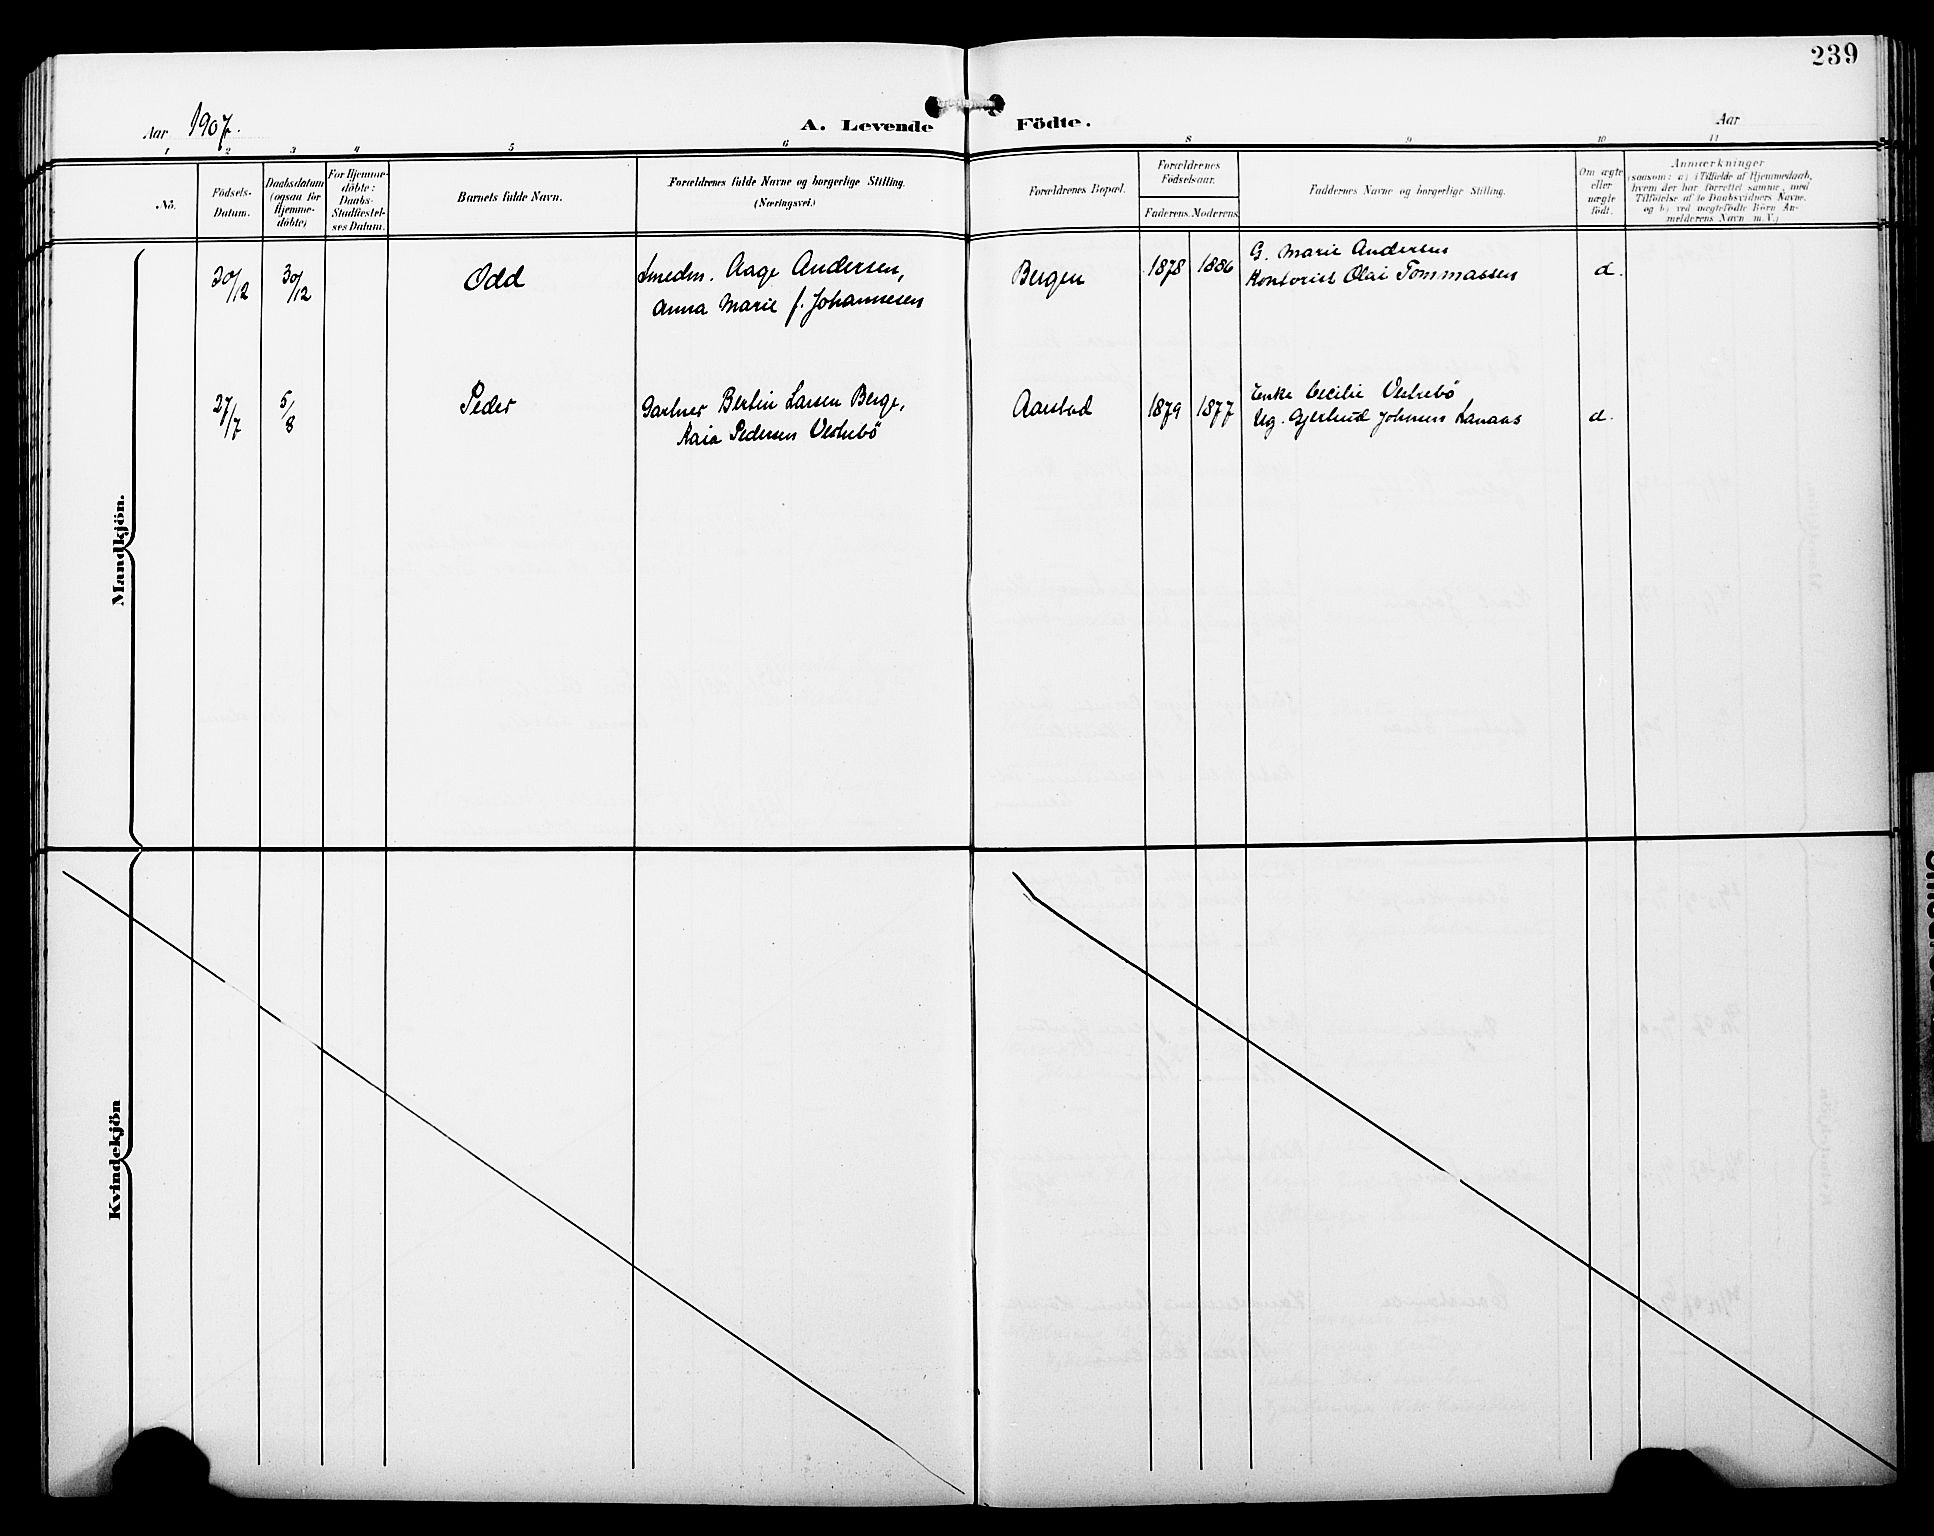 239
Aar 1907.
A. Levende Födte.
Aar
1 2 3 4 5 6 8 9 10 11
No.
Födsels-Datum.
Daabsdatum (ogsaa for Hjemme-döbte)
For Hjemme-döbte: Daabs-Stadfæstel-ses Datum.
Barnets fulde Navn.
Forældrenes fulde Navne og borgerlige Stilling.
(Næringsvei.)
Forældrenes Bopæl.
Forældrenes Födselsaar.
Faderens. Moderens.
Faddernes Navne og borgerlige Stilling.
Om ægte eller uægte födt.
Anmærkninger
(saasom: a) i Tilfælde af Hjemmedaab,
hvem der har forrettet samme, med
Tilföielse af to Daabsvidners Navne,
og b) ved uægtefödte Börn An-
melderens Navn m. V.)
Mandkjön.
30/12 30/12 Odd Smedm. Aage Andersen, Bergen 1878 1886 G. Marie Andersen
Anna Marie f. Johannesen Kontorist Olai Tommassen
27/7 5/8 Peder Gartner Bertin Larsen Berge, Aarstad 1879 1877 Enke Cecilie Vestrebö
Kaia Pedersen Vestrebö Ug. Gjertrud
Kvindekjön